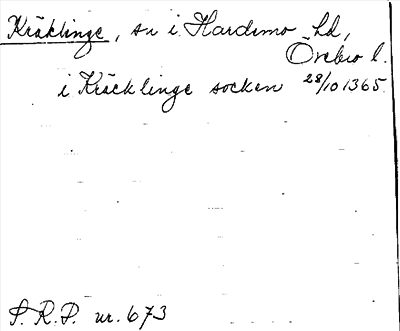 Kräklinge, sn i Hardemo hd,
Örebro l.
i Kräcklinge socken 28/10 1365.
S.R.P. nr. 673